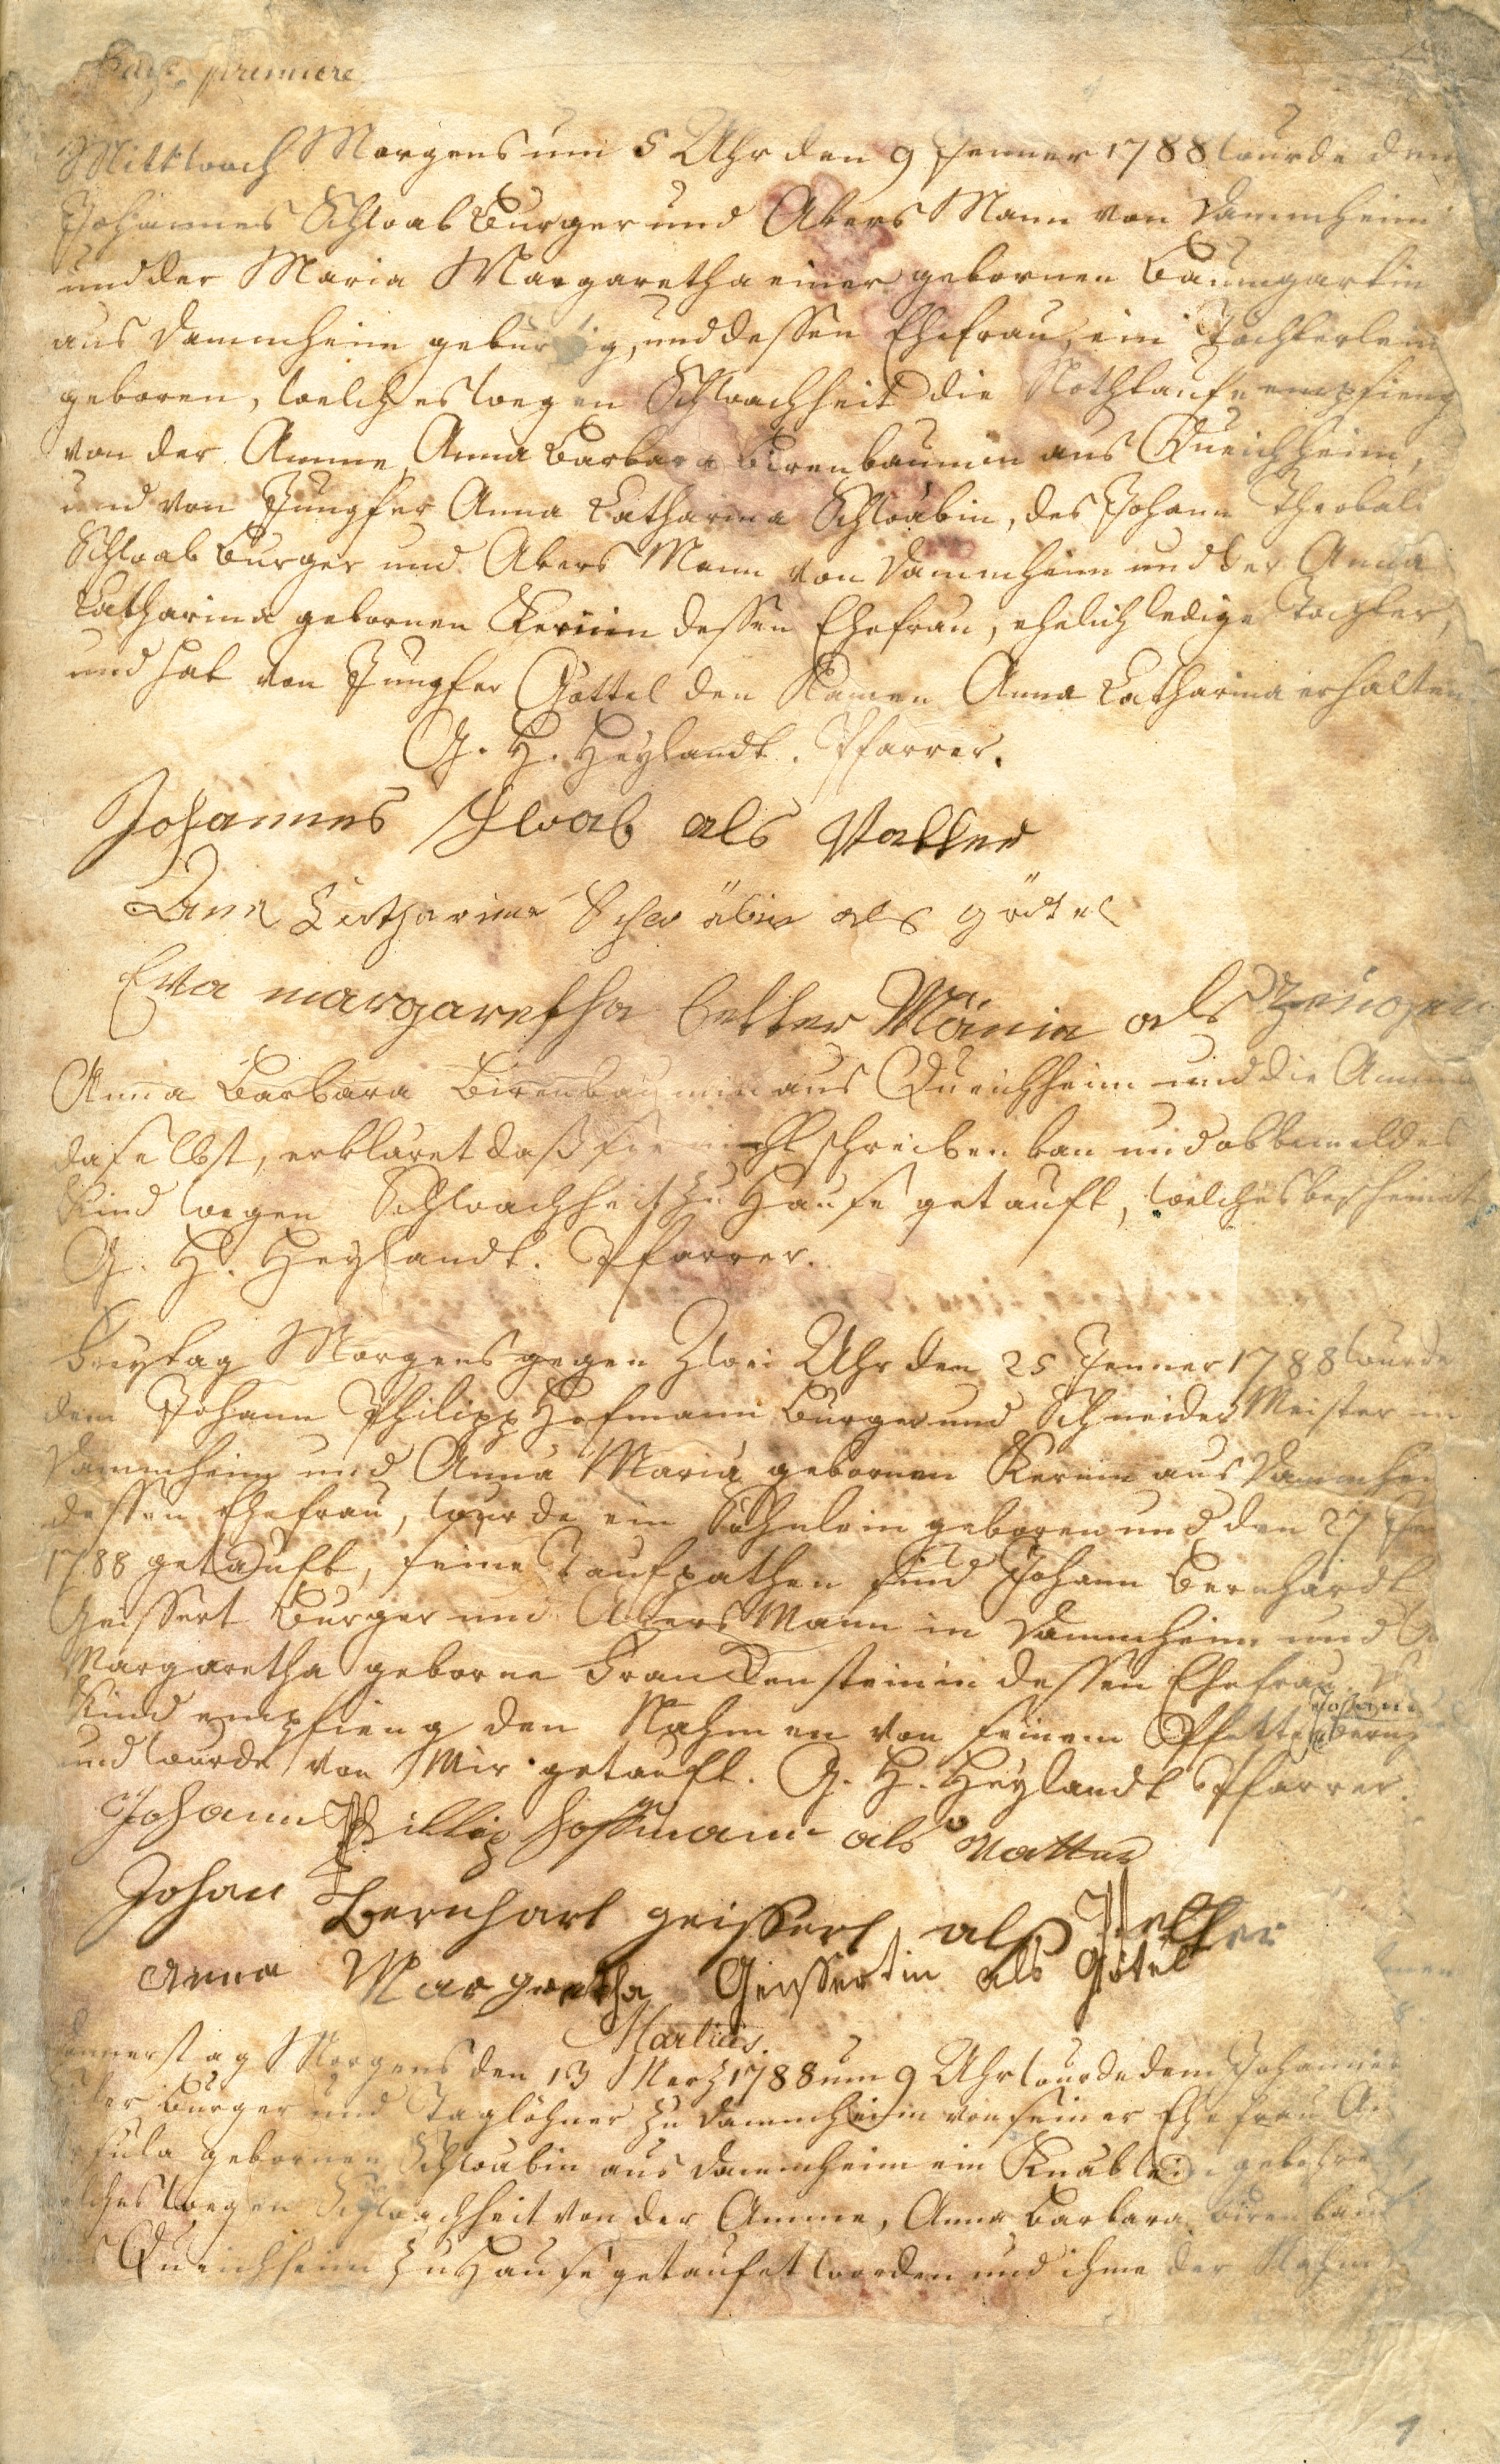 Page premiere
Mittwoch Morgens um 5 Uhr den 9 Jenner 1788 wurde dem
Johannes Schwab Burger und Akers Mann von Dammheim
und der Maria Margaretha einer gebornen Baumgartin
aus Dammheim gebürtig, und dessen Ehefrau, ein Töchterlein
geboren, welches wegen Schwachheit die Nothtaufe empfieng
von der Amme Anna Barbara Birenbaumin aus Queichheim,
und von Jungfer Anna Catharina Schwäbin, des Johann Theobald
Schwab Burger und Akers Mann von Dammheim und der Anna
Catharina gebornen Kernin dessen Ehefrau, ehelich ledige Tochter,
und hat von Jungfer Göttel den Namen Anna Catharina erhalten
G. H. Heylandt. Pfarrer.
Johannes schwab als Vatter
Anna Catharina Schwäbin als götel
Eva margaretha Better Mänin als Zeugen
Anna Barbara Birenbaumin aus Queichheim und die Amme
daselbst, erkläret daß sie nicht schreiben kan und obbemeldes
Kind wegen Schwachheit zu Hause getauft, welches bescheinet
G. H. Heylandt. Pfarrer.
Freytag Morgens gegen Zwei Uhr den 25 Jenner 1788 wurde
dem Johann Philipp Hofmann Burger und Schneider Meister in
Dammheim und Anna Maria gebornen Kernin aus Dammheim
dessen Ehefrau, wurde ein Söhnlein geboren und den 27
1788 getauft, seine Taufpathen sind Johann Bernhardt
Geissert Burger und Akers Mann in Dammheim und
Margaretha geborne Franckensteinin dessen Ehefrau.
Kind empfieng den Nahmen von seinem Pfetter Johann Bern
und wurde von Mir getauft. G. H. Heylandt Pfarrer.
Johann Phillip Hoffmann als Vatter
Johan Bernhart geissert als Petter
Anna Margretha Geissertin als Götel
Martius.
Donnerstag Morgens den 13 Merz 1788 um 9 Uhr wurde dem Johannes
Burger und Taglöhner zu Dammheim von seiner Ehefrau
gebornen Schwäbin aus Dammheim ein Knäblein gebohren
welches wegen Schwachheit von der Amme, Anna Barbara Birenbaum
aus Queichheim zu Hause getaufet worden und ihme der Nahme
1